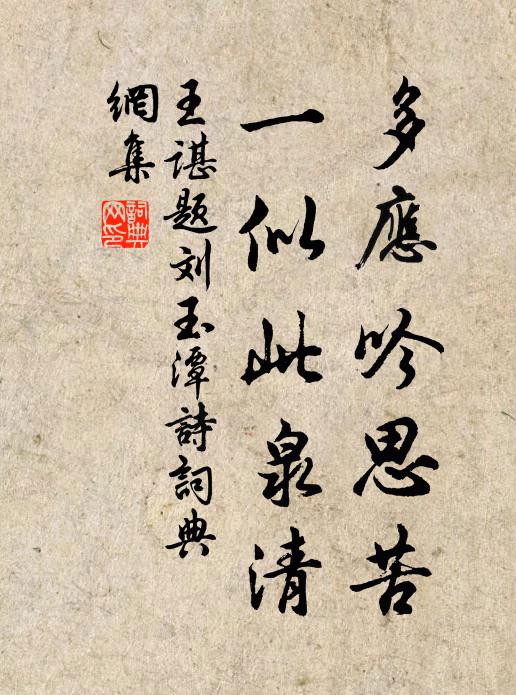 多應吟思苦
一似此泉清
王諶題刘玉潭詩詞典
網集
詞典
网印